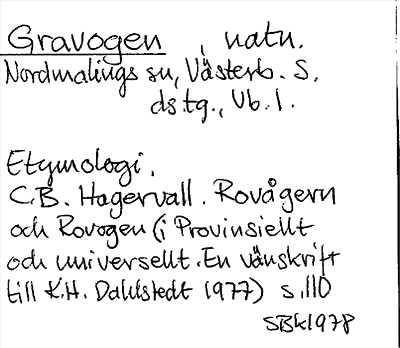 Gravogen, natn.
Nordmalings sn, Västerb. S.
ds.tg., Vb. l.
Etymologi.
C.B. Hagervall. Rovågern
och Rovogen (i Provinsiellt
och universellt. En vänskrift
till K.H. Dahlstedt 1977) s. 110
SBk1978